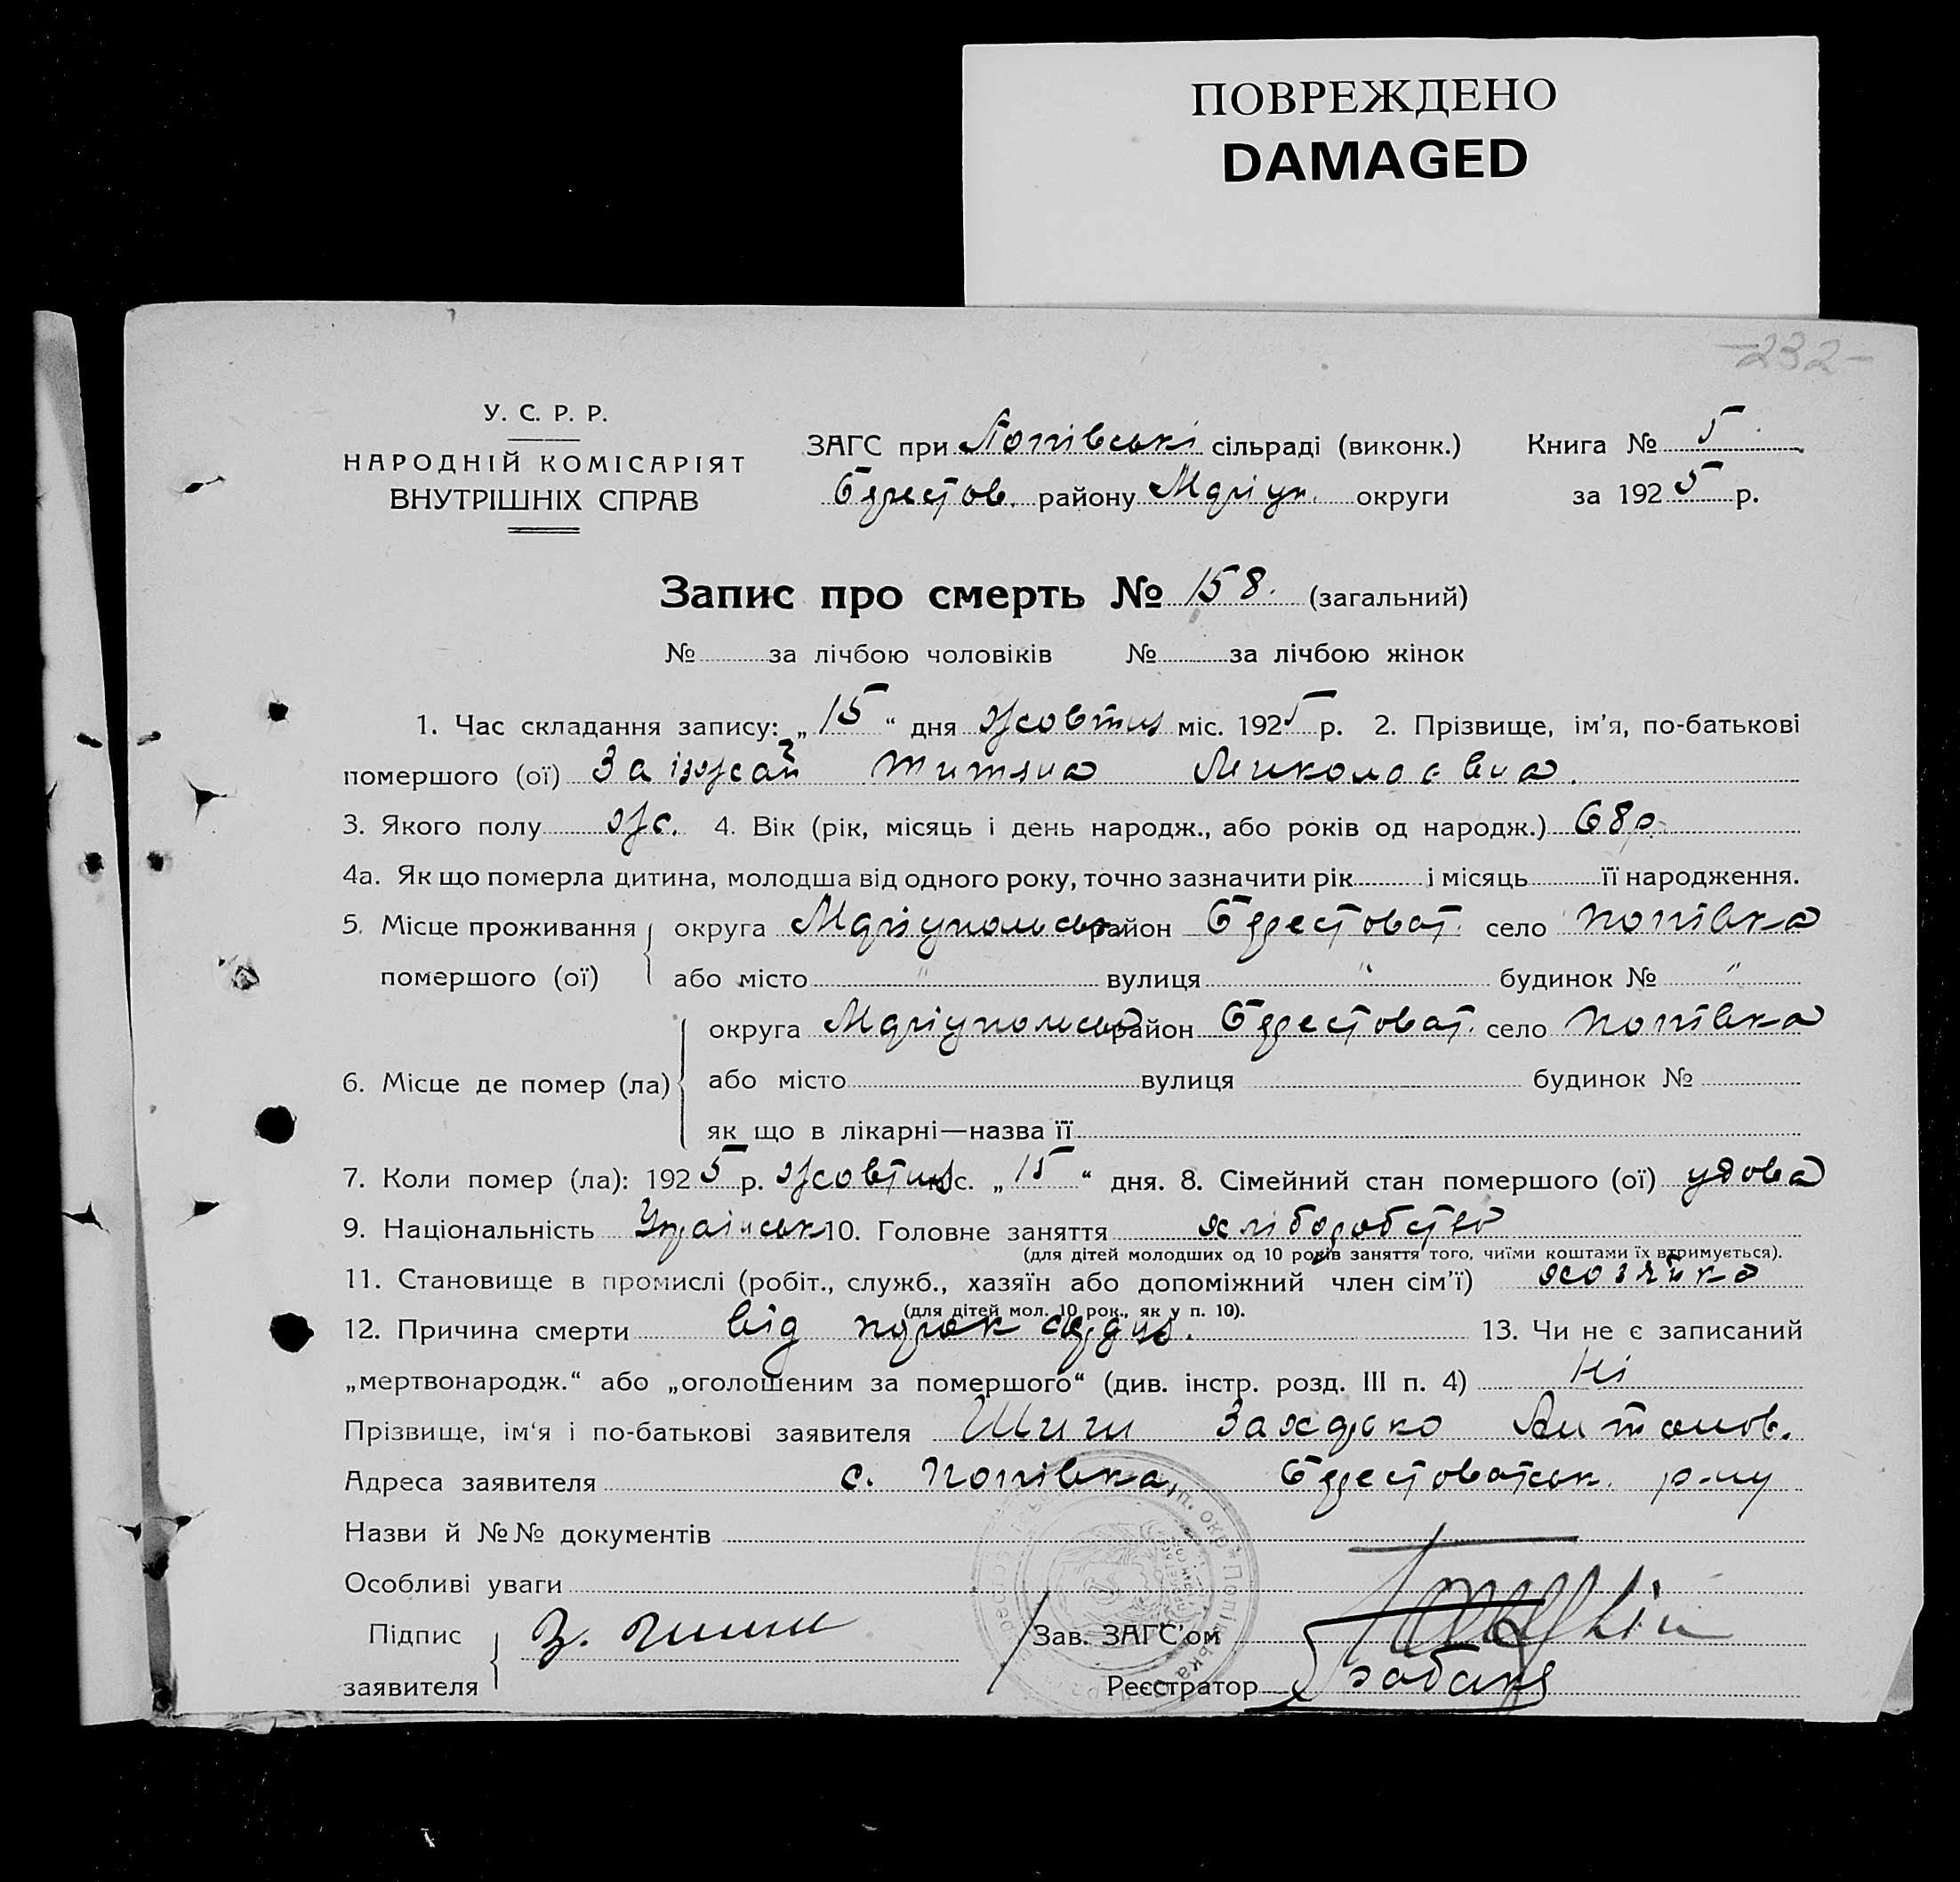 ПОВРЕЖДЕНО
DAMAGED
-232-
У. С. Р. Р.
НАРОДНІЙ КОМІСАРІЯТ
ВНУТРІШНІХ СПРАВ
ЗАГС при Попівські сільраді (виконк.) Книга № 5
Берестов. району Маріуп. округи за 1925 р.
Запис про смерть № 158. (загальний)
№ за лічбою чоловіків № за лічбою жінок
1. Час складання запису: „15“ дня жовтня міс. 1925 р. 2. Прізвище, ім'я, по-батькові
помершого (ої) Заїжжай Титяна Миколаєвна.
3. Якого полу ж. 4. Вік (рік, місяць і день народж., або років од народж.) 68 р.
4а. Як що померла дитина, молодша від одного року, точно зазначити рік і місяць її народження.
5. Місце проживання округа Маріупольськ район Берестоват. село Попівка
помершого (ої) або місто " вулиця " будинок № "
округа Маріупольськ район Берестоват. село Попівка
6. Місце де помер (ла) або місто вулиця будинок №
як що в лікарні—назва її
7. Коли помер (ла): 1925 р. жовтня міс. „15“ дня. 8. Сімейний стан помершого (ої) удова
9. Національність Українськ 10. Головне заняття хліборобство
(для дітей молодших од 10 років заняття того, чиїми коштами їх втримується).
11. Становище в промислі (робіт., служб., хазяїн або допоміжний член сім'ї) хозяйка
(для дітей мол. 10 рок., як у п. 10).
12. Причина смерти від порок сердця. 13. Чи не є записаний
„мертвонародж.“ або „оголошеним за помершого“ (див. інстр. розд. III п. 4) Ні
Прізвище, ім'я і по-батькові заявителя Антонов.
Адреса заявителя с. Попівка, Берестоватськ. р-ну
Назви й №№ документів
Особливі уваги
Підпис З. Зав. ЗАГС'ом
заявителя Реєстратор